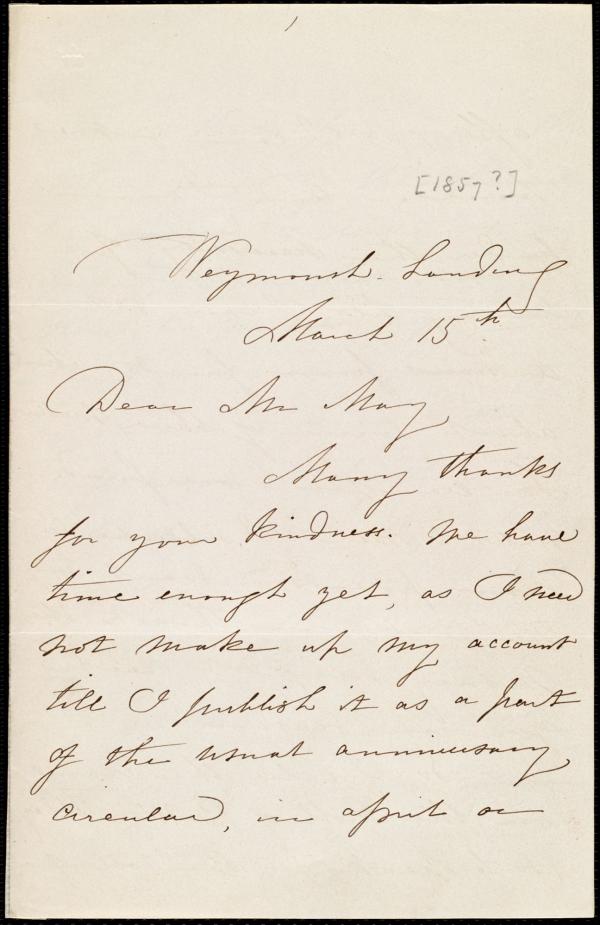 [1857?]
Weymouth. Landing
March 15th
Dear Mr May
Many thanks
for your kindness. We have
time enough yet, as I need
not make up my account
till I publish it as a part
of the usual anniversary
circular, in april or